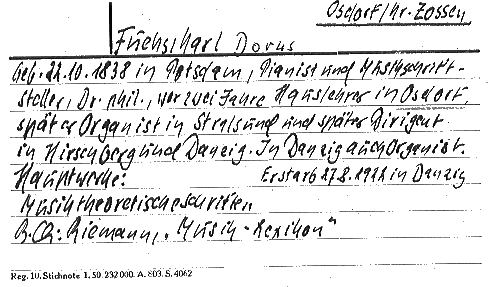 Osdorf/Kr. Zossen
Fuchs, Karl Dorus
Geb. 22.10.1838 in Potsdam, Pianist und Musikschrift-
steller, Dr. phil., war zwei Jahre Hauslehrer in Osdorf,
später Organist in Stralsund und später Dirigent
in Hirschberg und Danzig. In Danzig auch Organist.
Hauptwerke: Er starb 27.8.1922 in Danzig
Musiktheoretische Schriften
Riemann, "Musik-Lexikon"
Reg. 10. Stichnote 1. 50 232000. A. 803. S. 4062